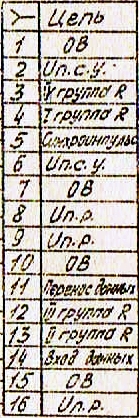 Цепь
1 ОВ
2 Uп.с.у.
3 V группа R
4 I группа R
5 Синхроимпульс
6 Uп.с.у.
7 ОВ
8 Uп.р.
9 Uп.р.
10 ОВ
11 Перенос данных
12 III группа R
13 II группа R
14 Вход данных
15 ОВ
16 Uп.р.